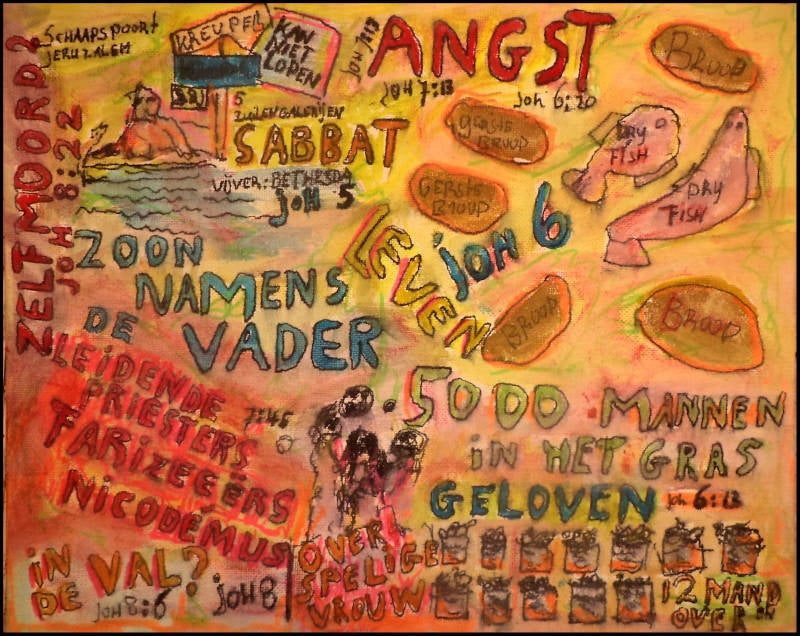 SCHAAPSPOORT
JERUZALEM
KREUPEL
KAN
NIET
LOPEN
JOH 7:13
ANGST
JOH 7:13
JOH 6:20
BROOD
5
ZUILENGALERIJEN
SABBAT
VIJVER: BETHESDA
JOH 5
GERSTE
BROOD
GERSTE
BROOD
DRY
FISH
DRY
FISH
ZELFMOORD?
JOH 8:22
ZOON
NAMENS
DE
VADER
LEVEN
JOH 6
BROOD
BROOD
LEIDENDE
PRIESTERS
7:45
FARIZEEËRS
NICODÉMUS
5000 MANNEN
IN HET GRAS
GELOVEN
JOH 6:13
IN VAL?
DE
JOH 8:6
JOH 8
OVER
SPELIGE
VROUW
12 MAND
OVER